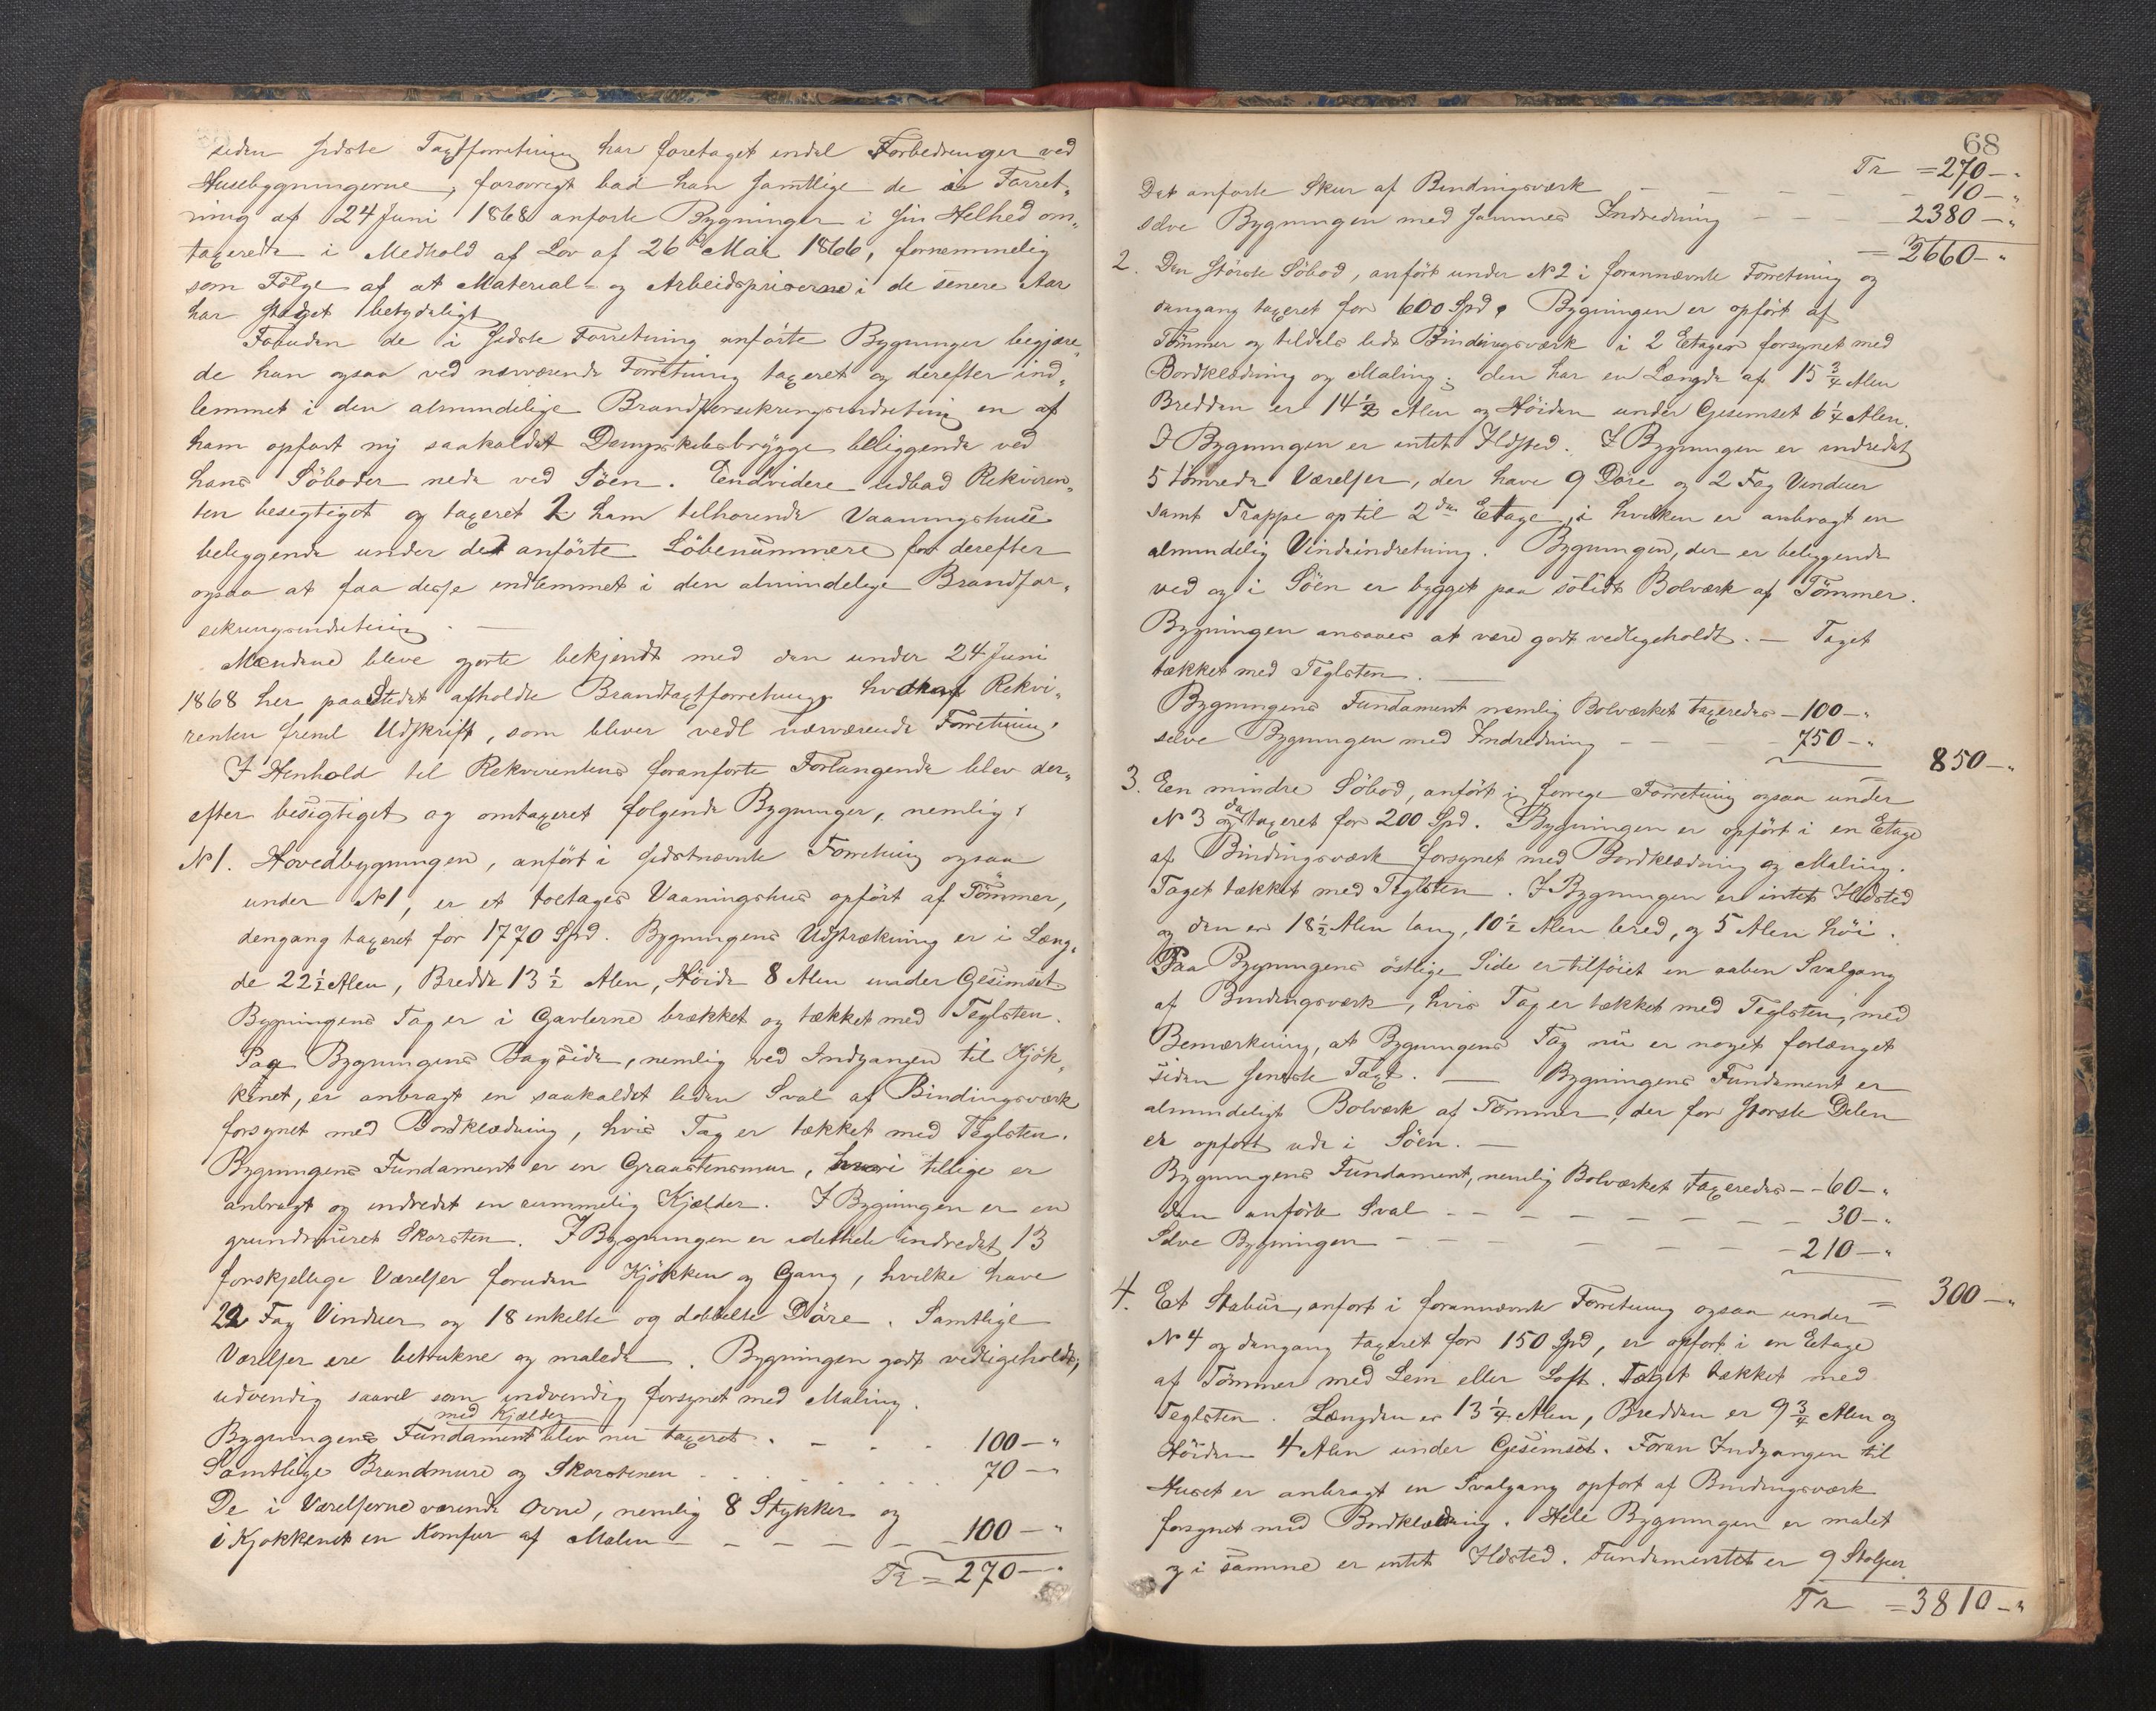 siden sidste Taxtforretning har foretaget endel Forbedringer ved
Husebygningerne, forøvrigt bad han samtlige de i Forret„
ning af 24 Juni 1868 anførte Bygninger i sin Helhed om„
taxerede i Medhold af Lov af 26de Mai 1866, fornemmelig
som Følge af at Material- og Arbeidspriserne i de senere Aar
har steget betydeligt
Foruden de i sidste Forretning anførte Bygninger begjære„
de han ogsaa ved nærværende Forretning taxeret og derefter ind„
lemmet i den almindelige Brandforsikringsindretning en af
ham opført ny saakaldet Dampskibsbrygge beliggende ved
hans Söboder nede ved Söen. Endvidere udbad Rekviren„
ten besigtiget og taxeret 2 ham tilhørende Vaaningshuse
beliggende under det anförte Löbenummere for derefter
ogsaa at faa disse indlemmet i den almindelige Brandfor„
sikringsindretning. —
Mændene bleve gjorte bekjendt med den under 24 Juni
1868 her paa Stedet afholdte Brandtaxtforretning hvoraf Rekvi„
renten freml Udskrift, som bliver vedl nærværende Forretning.
I Henhold til Rekvirentens foranførte Forlangende blev der„
efter besigtiget og omtaxeret følgende Bygninger, nemlig:
No 1. Hovedbygningen, anfört i sidstnævnte Forretning ogsaa
under No 1, er et toetages Vaaningshus opfört af Tömmer,
dengang taxeret for 1770 Spd. Bygningens Udstrækning er i Læng„
de 22½ Alen, Bredde 13½ Alen, Höide 8 Alen under Gesimset
Bygningens Tag er i Gavlerne brækket og tækket med Teglsten.
Paa Bygningens Bagside, nemlig ved Indgangen til Kjök„
kenet, er anbragt en saakaldet liden Sval af Bindingsværk
forsynet med Bordklædning, hvis Tag er tækket med Teglsten.
Bygningens Fundament er en Graastensmur, hvori tillige er
anbragt og indredet en rummelig Kjælder. I Bygningen er en
grundmuret Skorsten. I Bygningen er idethele indredet 13
forskjellige Værelser foruden Kjökken og Gang, hvilke have
22 Fag Vinduer og 18 enkelte og dobbelte Döre. Samtlige
Værelser ere betrukne og malede. Bygningen godt vedligeholdt,
udvendig saavel som indvendig forsynet med Maling.
med Kjælder
Bygningens Fundament blev nu taxeret . - . . 100 — „
Samtlige Brandmure og Skorstenen . . . . . . . 70 — „
De i Værelserne værende Ovne, nemlig 8 Stykker og
i Kjøkkenet en Komfur af Malm — — — — — — 100 — „
Tr = 270 — „
68
Tr = 270 — „
Det anførte Skur af Bindingsværk — — — — 10 — „
selve Bygningen med sammes Indredning — — — 2380 — „
= 2660 — „
2. Den störste Söbod, anfört under No 2 i forannævnte Forretning og
dengang taxeret for 600 Spd. Bygningen er opfört af
Tömmer og tildels lidt Bindingsværk i 2 Etager forsynet med
Bordklædning og Maling; den har en Længde af 15¾ Alen
Bredden er 14½ Alen og Höiden under Gesimset 6¼ Alen.
I Bygningen er intet Ildsted. I Bygningen er indredet
5 tömrede Værelser, der have 9 Döre og 2 Fag Vinduer
samt Trappe op til 2den Etage, i hvilken er anbragt en
almindelig Vindeindretning. Bygningen, der er beliggende
ved og i Söen er bygget paa solidt Bolværk af Tömmer.
Bygningen ansaaes at være godt vedligeholdt. — Taget
tækket med Teglsten. —
Bygningens Fundament nemlig Bolværket taxeredes — 100 — „
selve Bygningen med Indredning — — — — 750 — „
850 — „
3. Een mindre Söbod, anfört i forrige Forretning ogsaa under
da
No 3 og taxeret for 200 Spd. Bygningen er opfört i en Etage
af Bindingsværk forsynet med Bordklædning og Maling.
Taget tækket med Teglsten. I Bygningen er intet Ildsted
og den er 18½ Alen lang, 10½ Alen bred, og 5 Alen höi.
Paa Bygningens östlige Side er tilföiet en aaben Svalgang
af Bindingsværk, hvis Tag er tækket med Teglsten, med
Bemærkning, at Bygningens Tag nu er noget forlænget
siden seneste Taxt. — Bygningens Fundament er
almindeligt Bolværk af Tömmer, der for störste Delen
er opfört ude i Söen. —
Bygningens Fundament, nemlig Bolværket taxeredes — - 60 — „
den anförte Sval — — — — — — — — — 30 — „
Selve Bygningen — — — — — — — - 210 — „
= 300 — „
4. Et Stabur, anfört i forannævnte Forretning ogsaa under
No 4 og dengang taxeret for 150 Spd, er opfört i en Etage
af Tömmer med Lem eller Loft. Taget tækket med
Teglsten. Længden er 13¼ Alen, Bredden er 9¾ Alen og
Höiden 4 Alen under Gesimset. Foran Indgangen til
Huset er anbragt en Svalgang opfört af Bindingsværk
forsynet med Bordklædning. Hele Bygningen er malet
og i samme er intet Ildsted. Fundamentet er 9 Stolper
Tr = 3810 — „